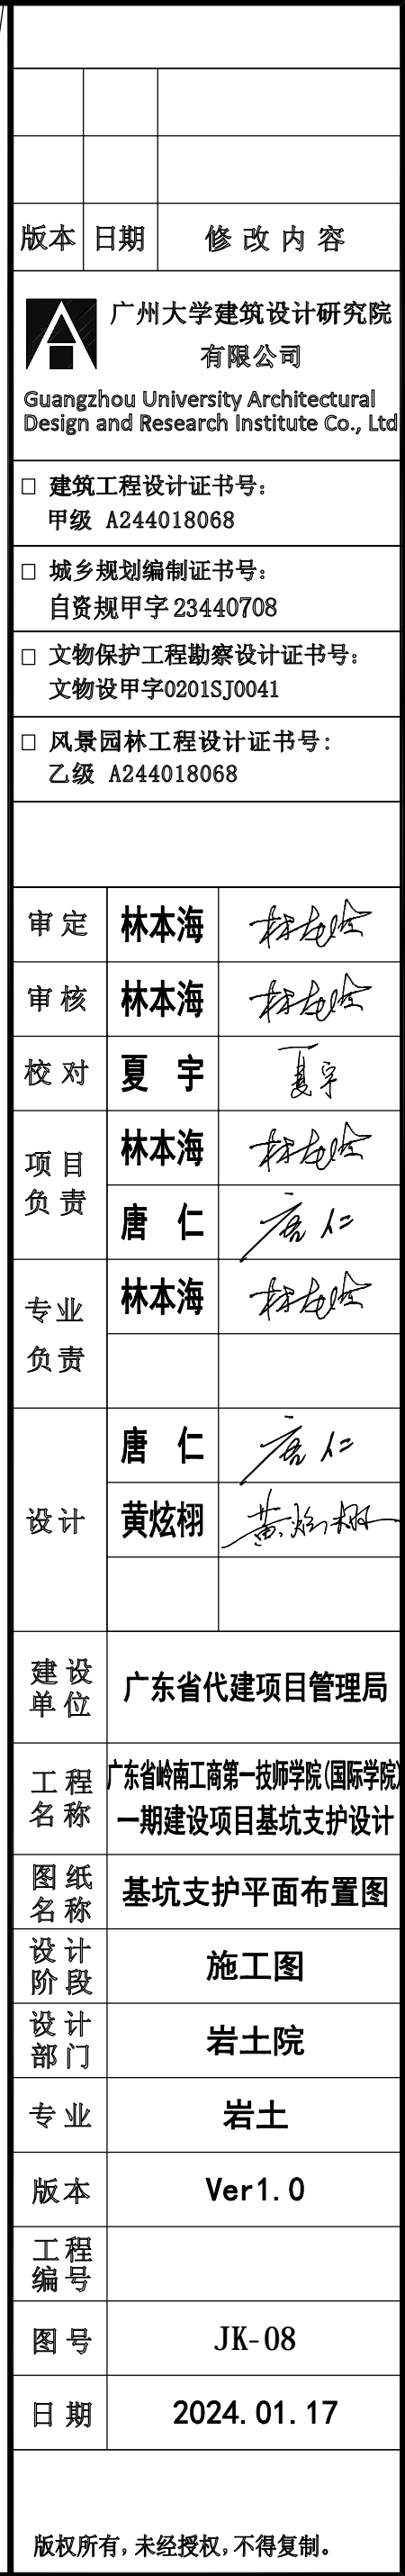 版本 日期 修改内容
广州大学建筑设计研究院
有限公司
Guangzhou University Architectural
Design and Research Institute Co., Ltd
□ 建筑工程设计证书号：
甲级 A244018068
□ 城乡规划编制证书号：
自资规甲字 23440708
□ 文物保护工程勘察设计证书号：
文物设甲字0201SJ0041
□ 风景园林工程设计证书号：
乙级 A244018068
审定 林本海 林本海
审核 林本海 林本海
校对 夏 宇 夏宇
项目
负责
林本海 林本海
唐 仁 唐仁
专业
负责
林本海 林本海
设计
唐 仁 唐仁
黄炫栩 黄炫栩
建设
单位
广东省代建项目管理局
工程
名称
广东省岭南工商第一技师学院(国际学院)
一期建设项目基坑支护设计
图纸
名称
基坑支护平面布置图
设计
阶段
施工图
设计
部门
岩土院
专业 岩土
版本 Ver1.0
工程
编号
图号 JK-08
日期 2024.01.17
版权所有，未经授权，不得复制。